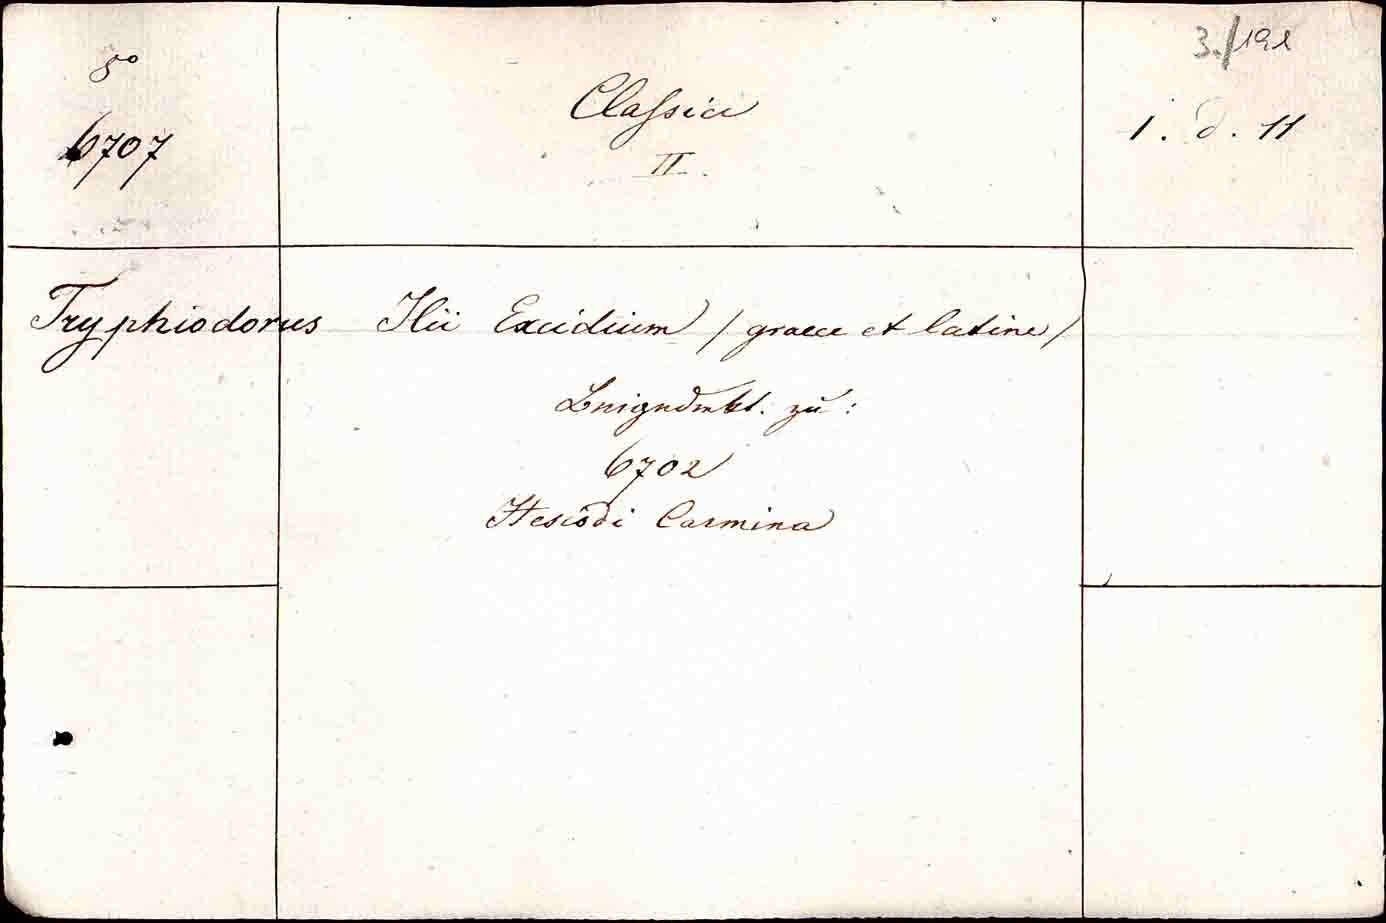 8°
6707
Classici
II.
3./191
1. d. 11
Tryphiodorus Ilii Excidium /graece et latine/
Beigedrukt. zu:
6702
Hesiodi Carmina